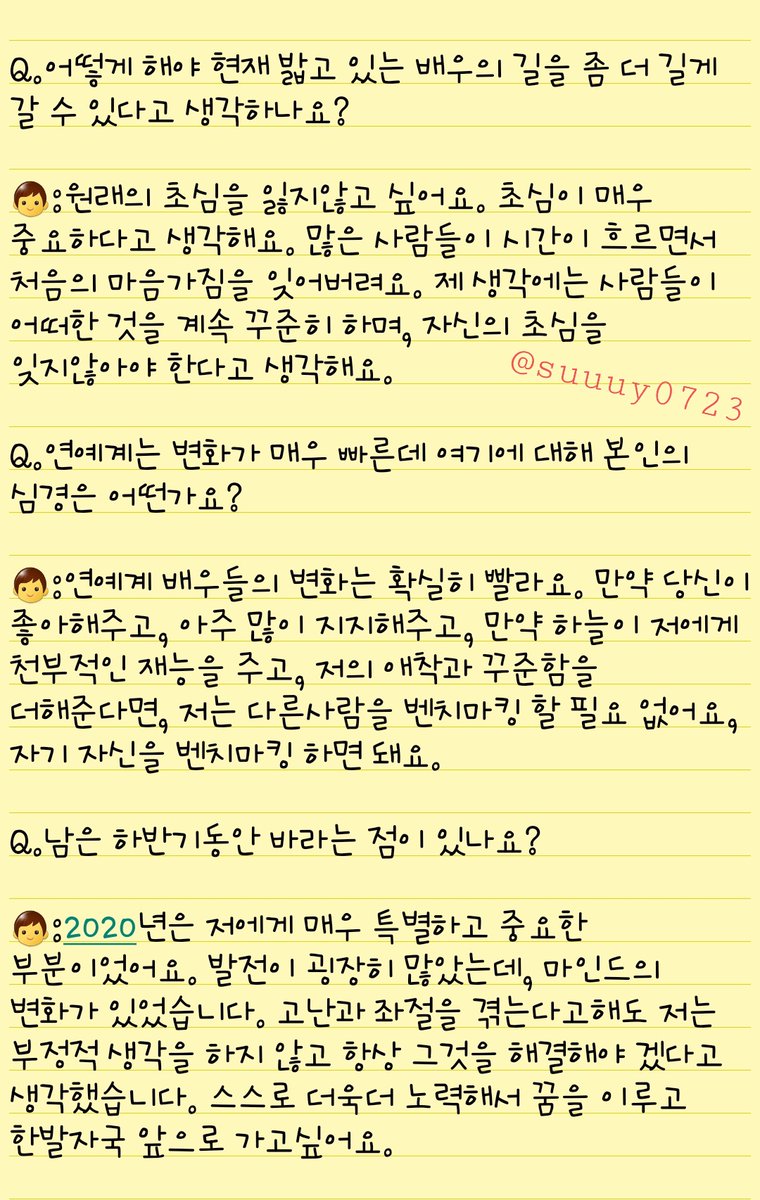 Q.어떻게 해야 현재 밟고 있는 배우의 길을 좀 더 길게
갈 수 있다고 생각하나요?
🧒:원래의 초심을 잃지않고 싶어요. 초심이 매우
중요하다고 생각해요. 많은 사람들이 시간이 흐르면서
처음의 마음가짐을 잊어버려요. 제 생각에는 사람들이
어떠한 것을 계속 꾸준히 하며, 자신의 초심을
잊지않아야 한다고 생각해요.
@suuuy0723
Q.연예계는 변화가 매우 빠른데 여기에 대해 본인의
심경은 어떤가요?
🧒:연예계 배우들의 변화는 확실히 빨라요. 만약 당신이
좋아해주고, 아주 많이 지지해주고, 만약 하늘이 저에게
천부적인 재능을 주고, 저의 애착과 꾸준함을
더해준다면, 저는 다른사람을 벤치마킹 할 필요 없어요,
자기 자신을 벤치마킹 하면 돼요.
Q.남은 하반기동안 바라는 점이 있나요?
🧒:2020년은 저에게 매우 특별하고 중요한
부분이었어요. 발전이 굉장히 많았는데, 마인드의
변화가 있었습니다. 고난과 좌절을 겪는다고해도 저는
부정적 생각을 하지 않고 항상 그것을 해결해야 겠다고
생각했습니다. 스스로 더욱더 노력해서 꿈을 이루고
한발자국 앞으로 가고싶어요.